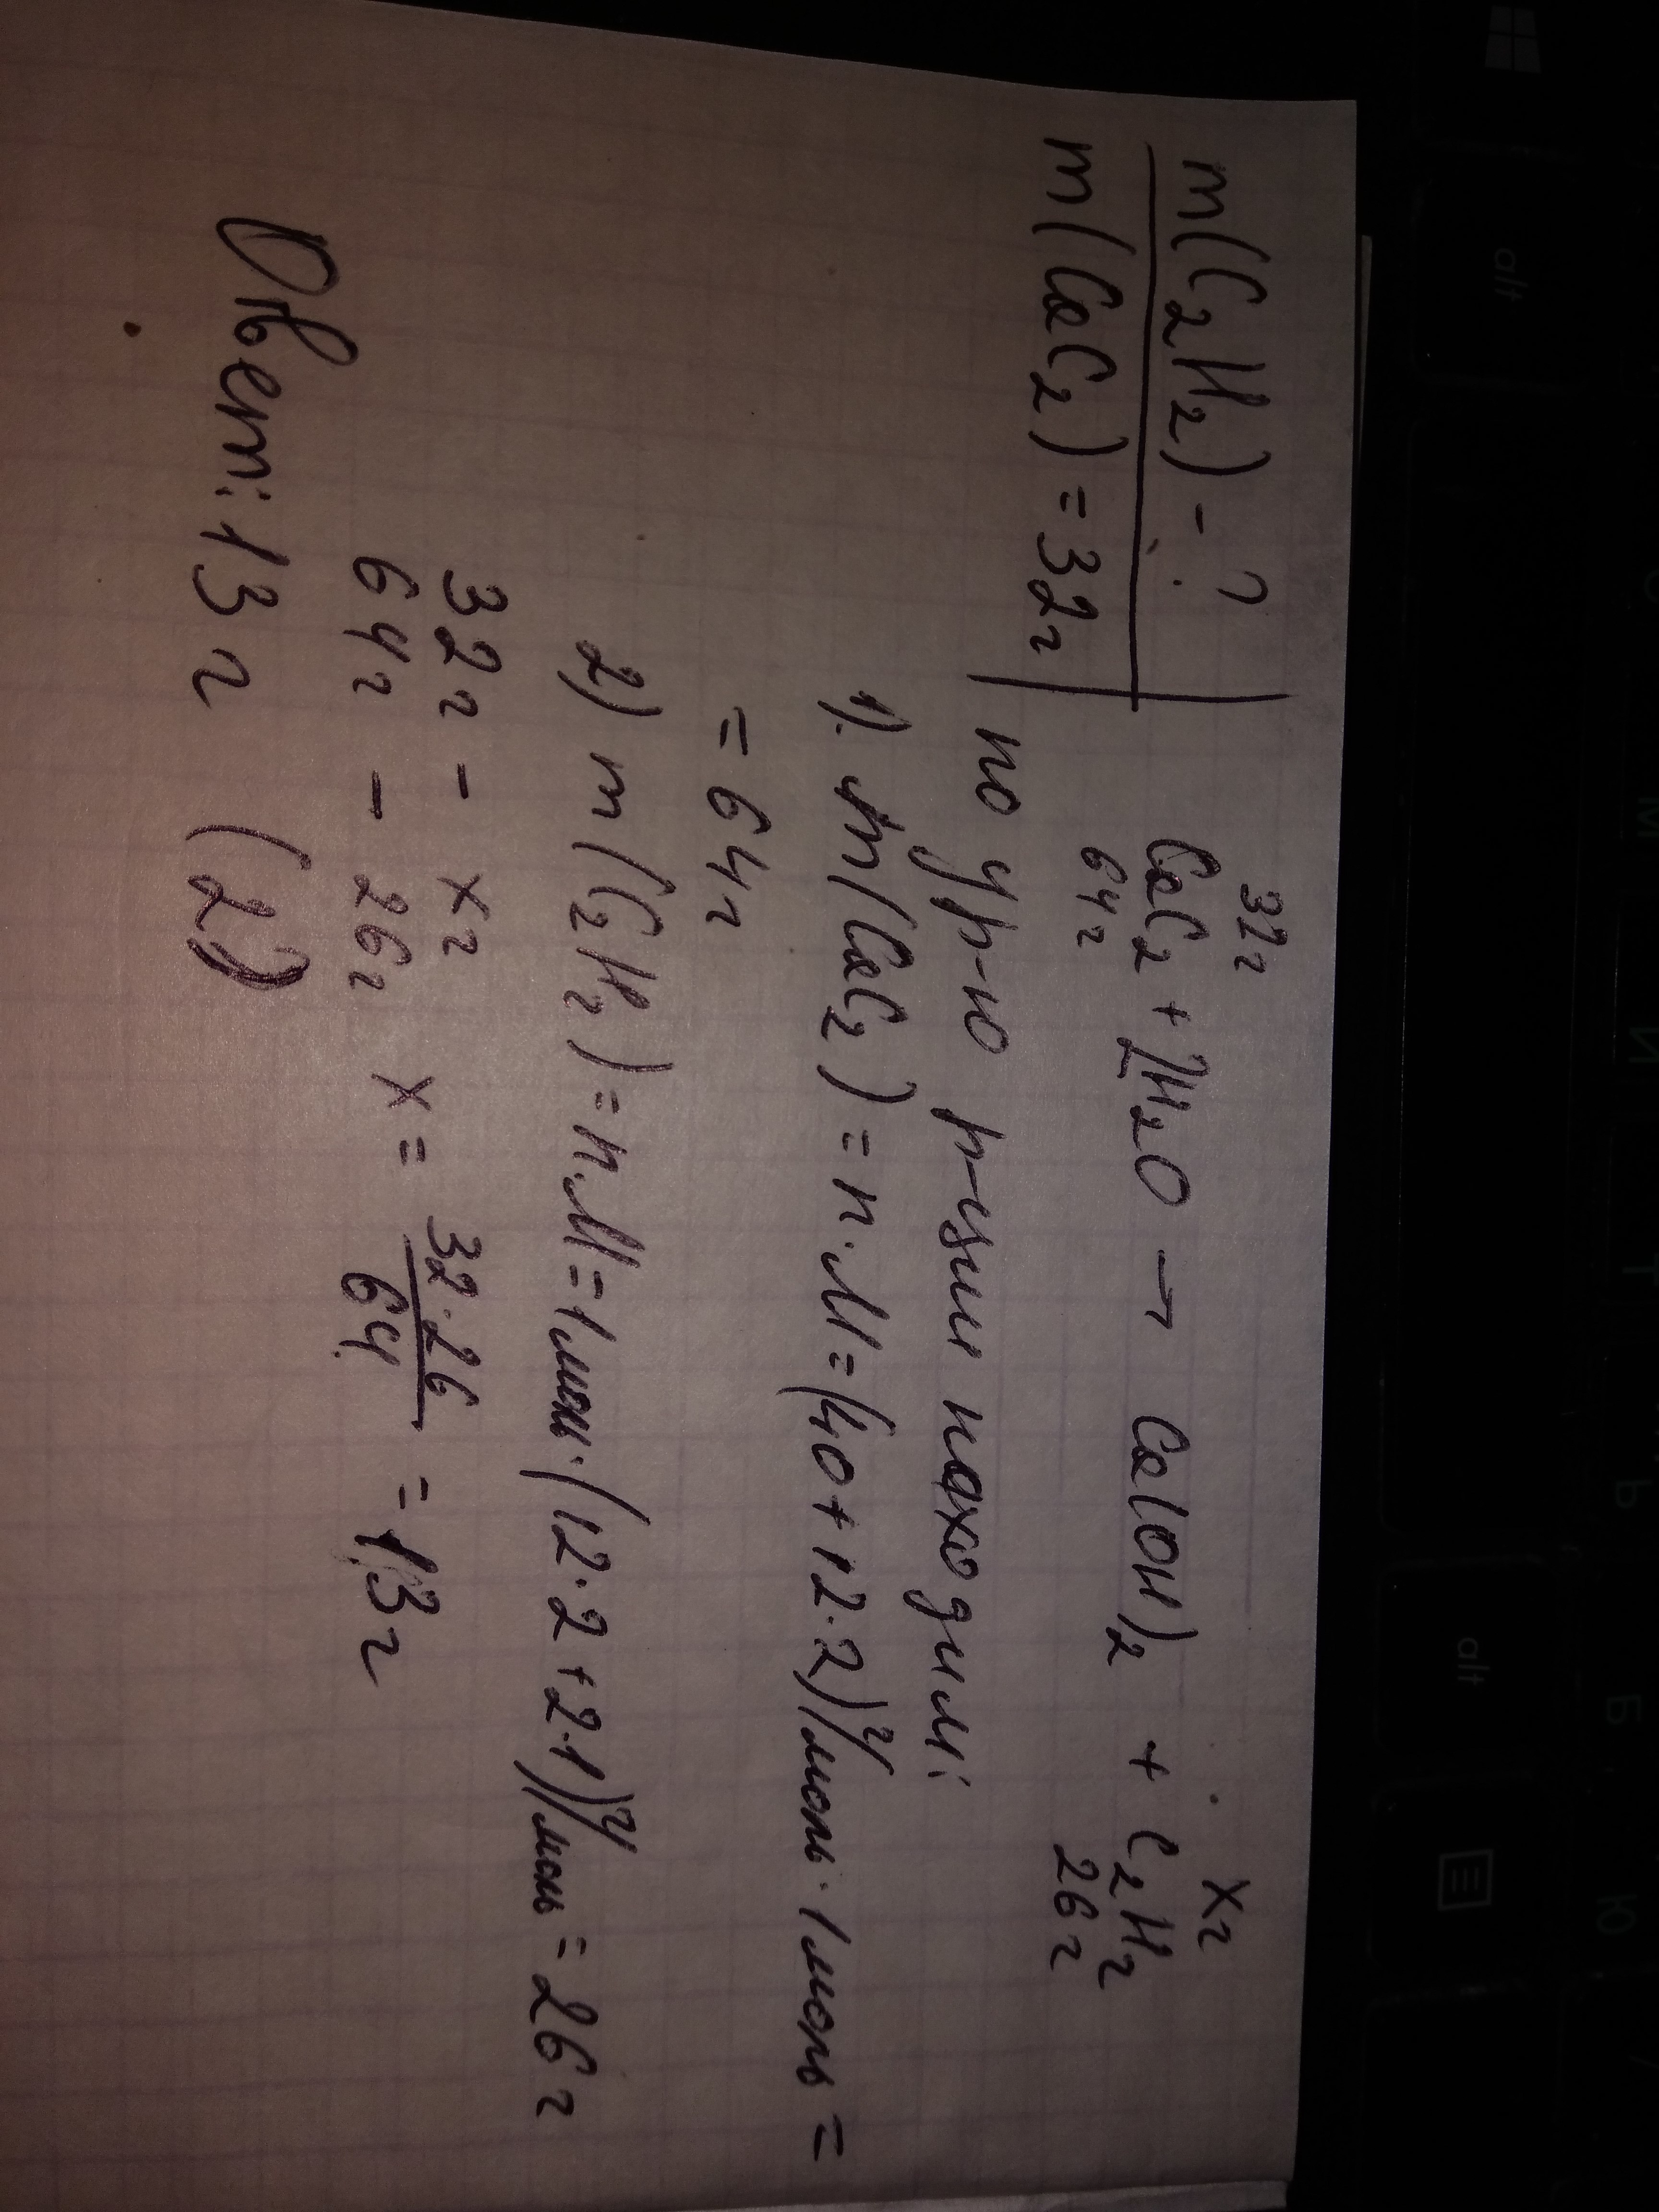 m(C₂H₂) - ?
m(CaC₂) = 32г
32г xг
CaC₂ + 2H₂O → Ca(OH)₂ + C₂H₂
64г 26г
по ур-ю р-ции находим:
1). m(CaC₂) = n·M = (40 + 12·2) г/моль · 1 моль =
= 64г
2) m(C₂H₂) = n·M = 1 моль·(12·2 + 2·1) г/моль = 26г
32г - xг
64г - 26г x = 32·26/64 = 13г
Ответ: 13 г (2)
alt
alt
М
И
Т
Ь
Б
Ю